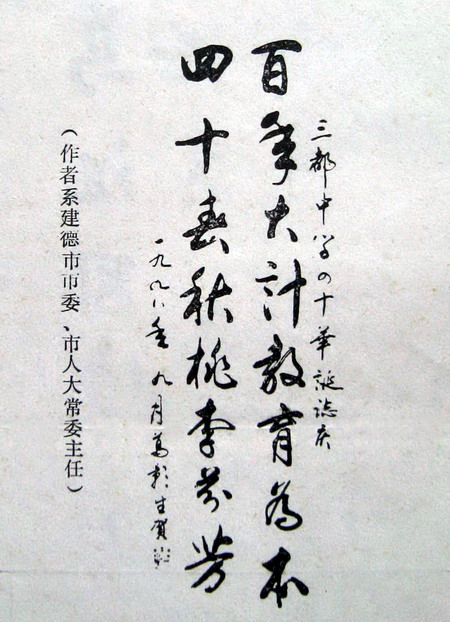 三都中学四十華誕誌庆
百年大计教育为本
四十春秋桃李芬芳
一九九八年九月 生贺
(作者系建德市市委、市人大常委主任)